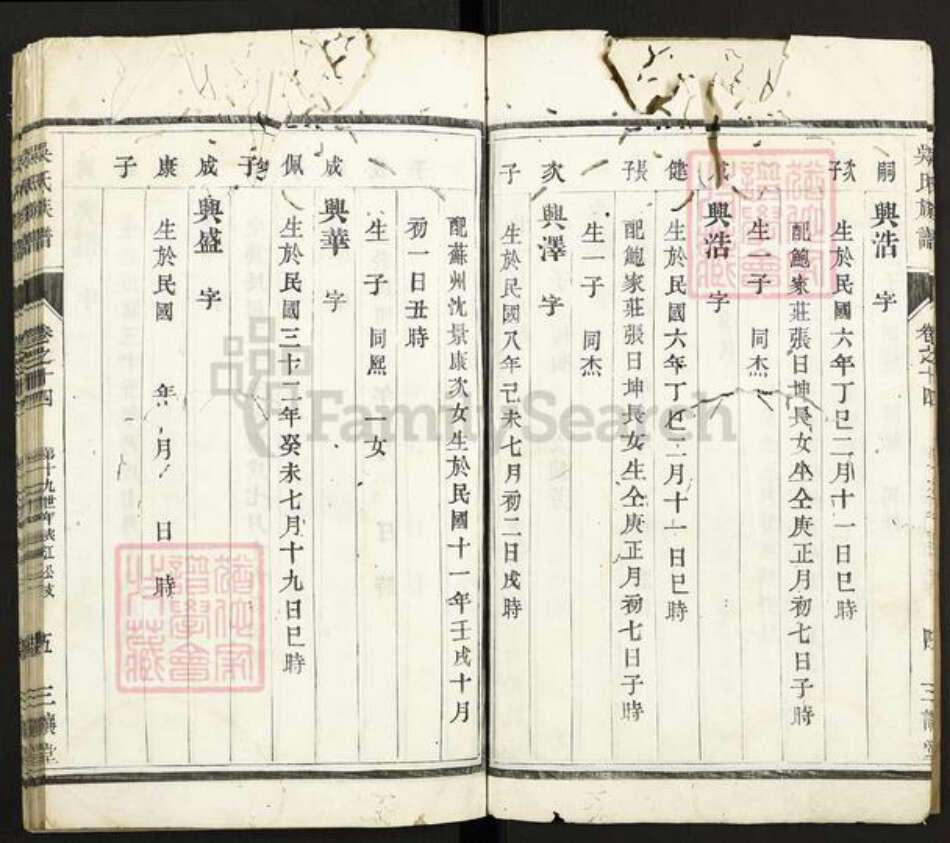 嗣子
興浩 字
生於民國六年丁巳二月十一日巳時
配鮑家莊張日坤長女生仝庚正月初七日子時
生一子 同杰
成健長子
興浩 字
生於民國六年丁巳二月十一日巳時
配鮑家莊張日坤長女生仝庚正月初七日子時
生一子 同杰
次子
興澤 字
生於民國八年己未七月初二日戌時
配蘇州沈景康次女生於民國十一年壬戌十月
初一日丑時
生子 同熙 一女
成佩子
興華 字
生於民國三十二年癸未七月十九日巳時
成康子
興盛 字
生於民國 年 月 日 時
吳氏族譜
卷之十四
三讓堂
吳氏族譜
卷之十四
五
三讓堂
FamilySearch